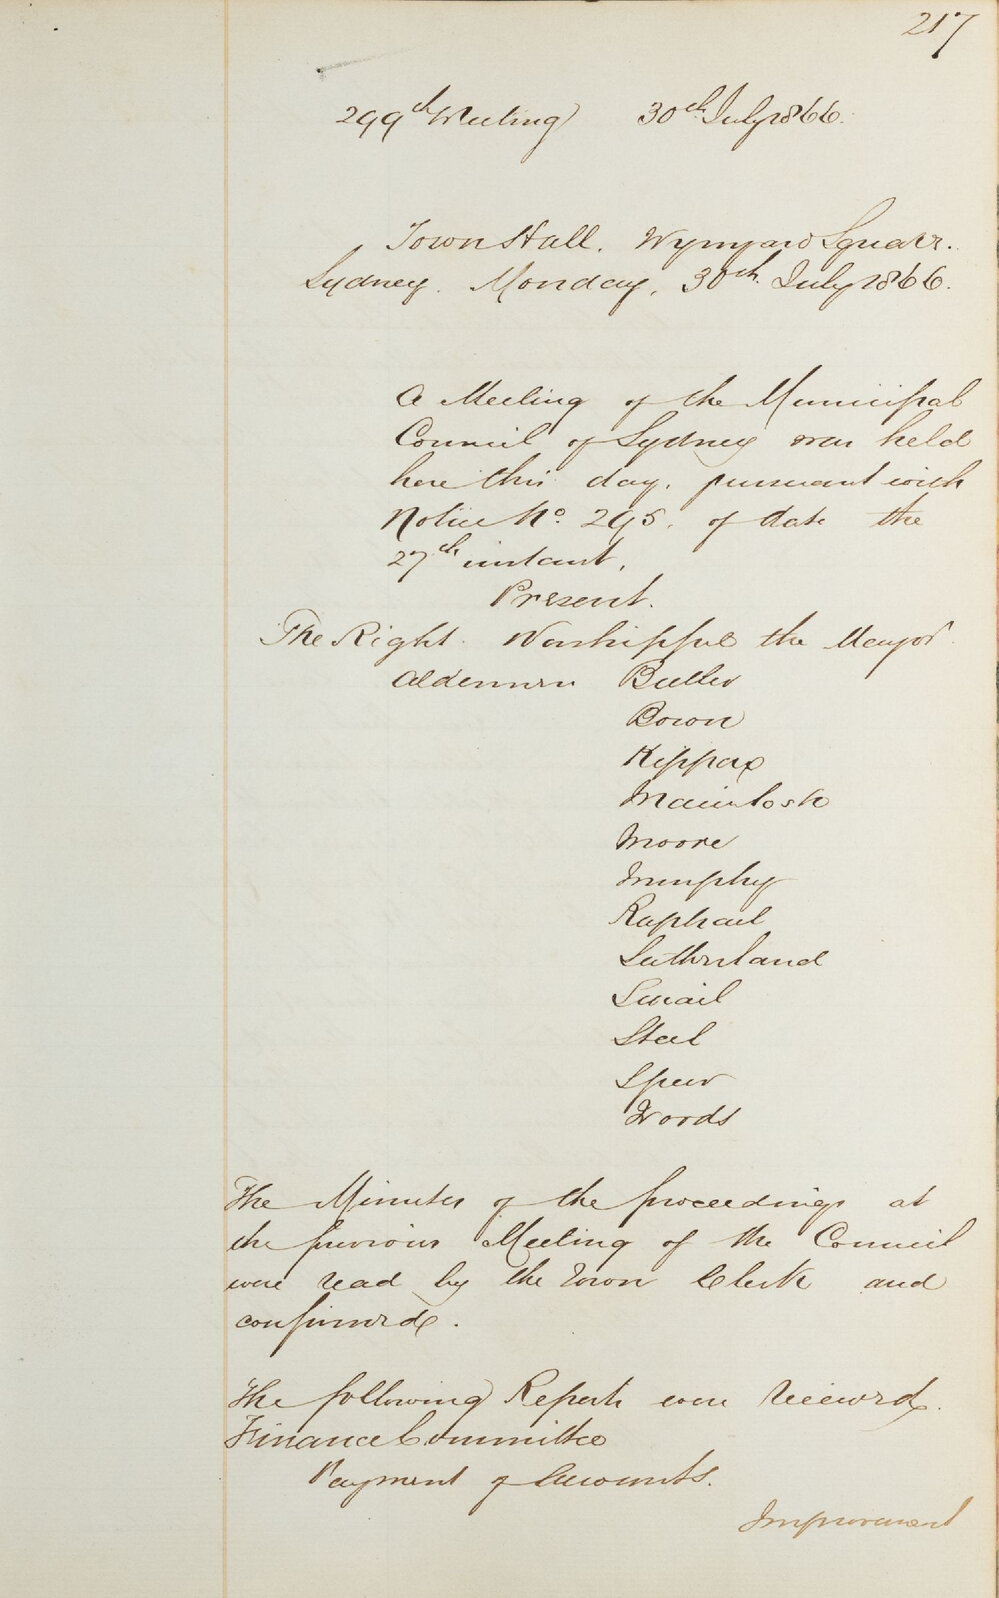 217
299th Meeting 30th July 1866.
Town Hall. Wynyard Square.
Sydney. Monday, 30th July 1866.
A Meeting of the Municipal
Council of Sydney was held
here this day, pursuant with
Notice No. 295, of date the
27th instant,
Present.
The Right Worshipful the Mayor
Aldermen Butler
Bown
Kippax
Macintosh
Moore
Murphy
Raphael
Sutherland
Smail
Steel
Speer
Woods
The Minutes of the proceedings at
the previous Meeting of the Council
were read by the Town Clerk and
confirmed.
The following Reports were received.
Finance Committee
Payment of Accounts.
Improvement